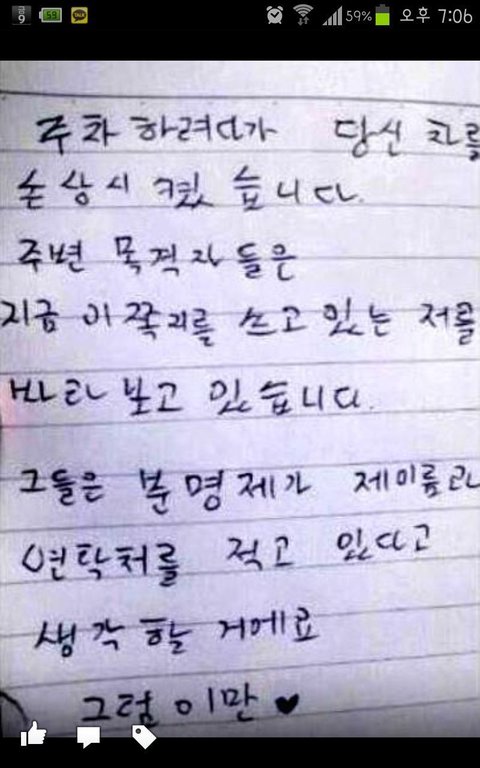 59 TALK 59% 오후 7:06
주차 하려다가 당신 차를
손상시켰습니다.
주변 목격자들은
지금 이 쪽지를 쓰고 있는 저를
바라보고 있습니다.
그들은 분명 제가 제이름과
연락처를 적고 있다고
생각할 거에요
그럼 이만 ♥